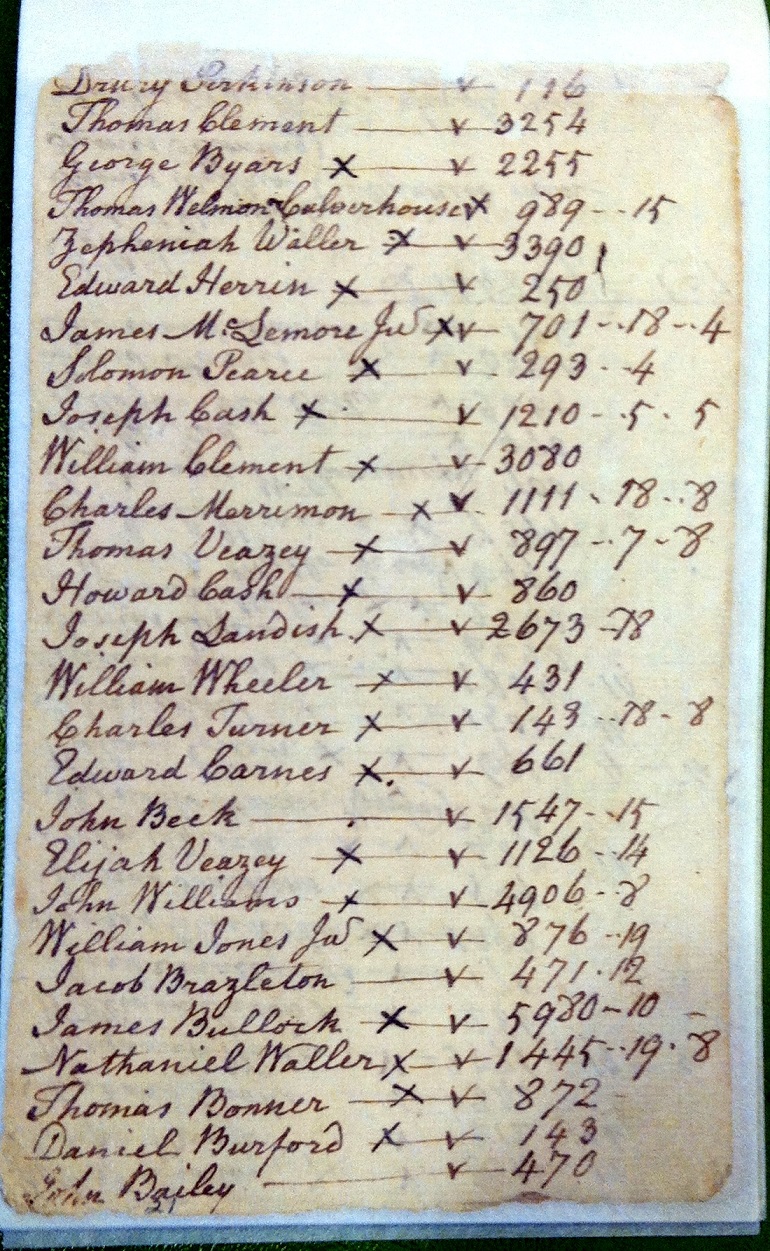 Drury Perkinson — v 116
Thomas Clement — v 3254
George Byars x — v 2255
Thomas Welmon Culverhouse v x 989 - - 15
Zepheniah Waller x — v 3390
Edward Herrin x — v 250
James McLemore Jur x v 701 - - 18 - - 4
Solomon Pearce x — v 293 - - 4
Joseph Cash x — v 1210 - 5 - 5
William Clement x — v 3080
Charles Merrimon — x v 1111 - 18 - - 8
Thomas Veazey — x — v 897 - - 7 - 8
Howard Cash — x — v 860
Joseph Landish x — v 2673 - 18
William Wheeler x — v 431
Charles Turner x — v 143 - - 18 - 8
Edward Carnes x — v 661
John Beck — v 1547 - - 15
Elijah Veazey x — v 1126 - - 14
John Williams x — v 4906 - - 8
William Jones Jur x — v 876 - - 19
Jacob Brazleton — v 471 - 12
James Bullock — x — v 5980 - 10 -
Nathaniel Waller x — v 1445 - - 19 - 8
Thomas Bonner — x — v 872
Daniel Burford x — v 143
John Bailey — v 470